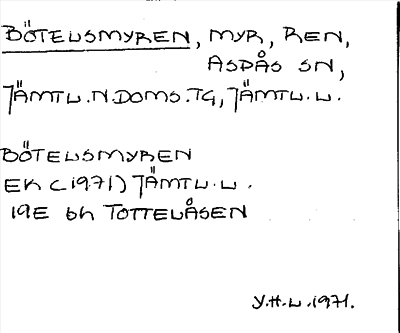 BÖTELSMYREN, MYR, REN,
ASPÅS SN,
JÄMTL.N.DOMS.TG, JÄMTL.L.
BÖTELSMYREN
EK (1971) JÄMTL.L.
19E 6h TOTTELÅSEN
Y.H.L.1971.